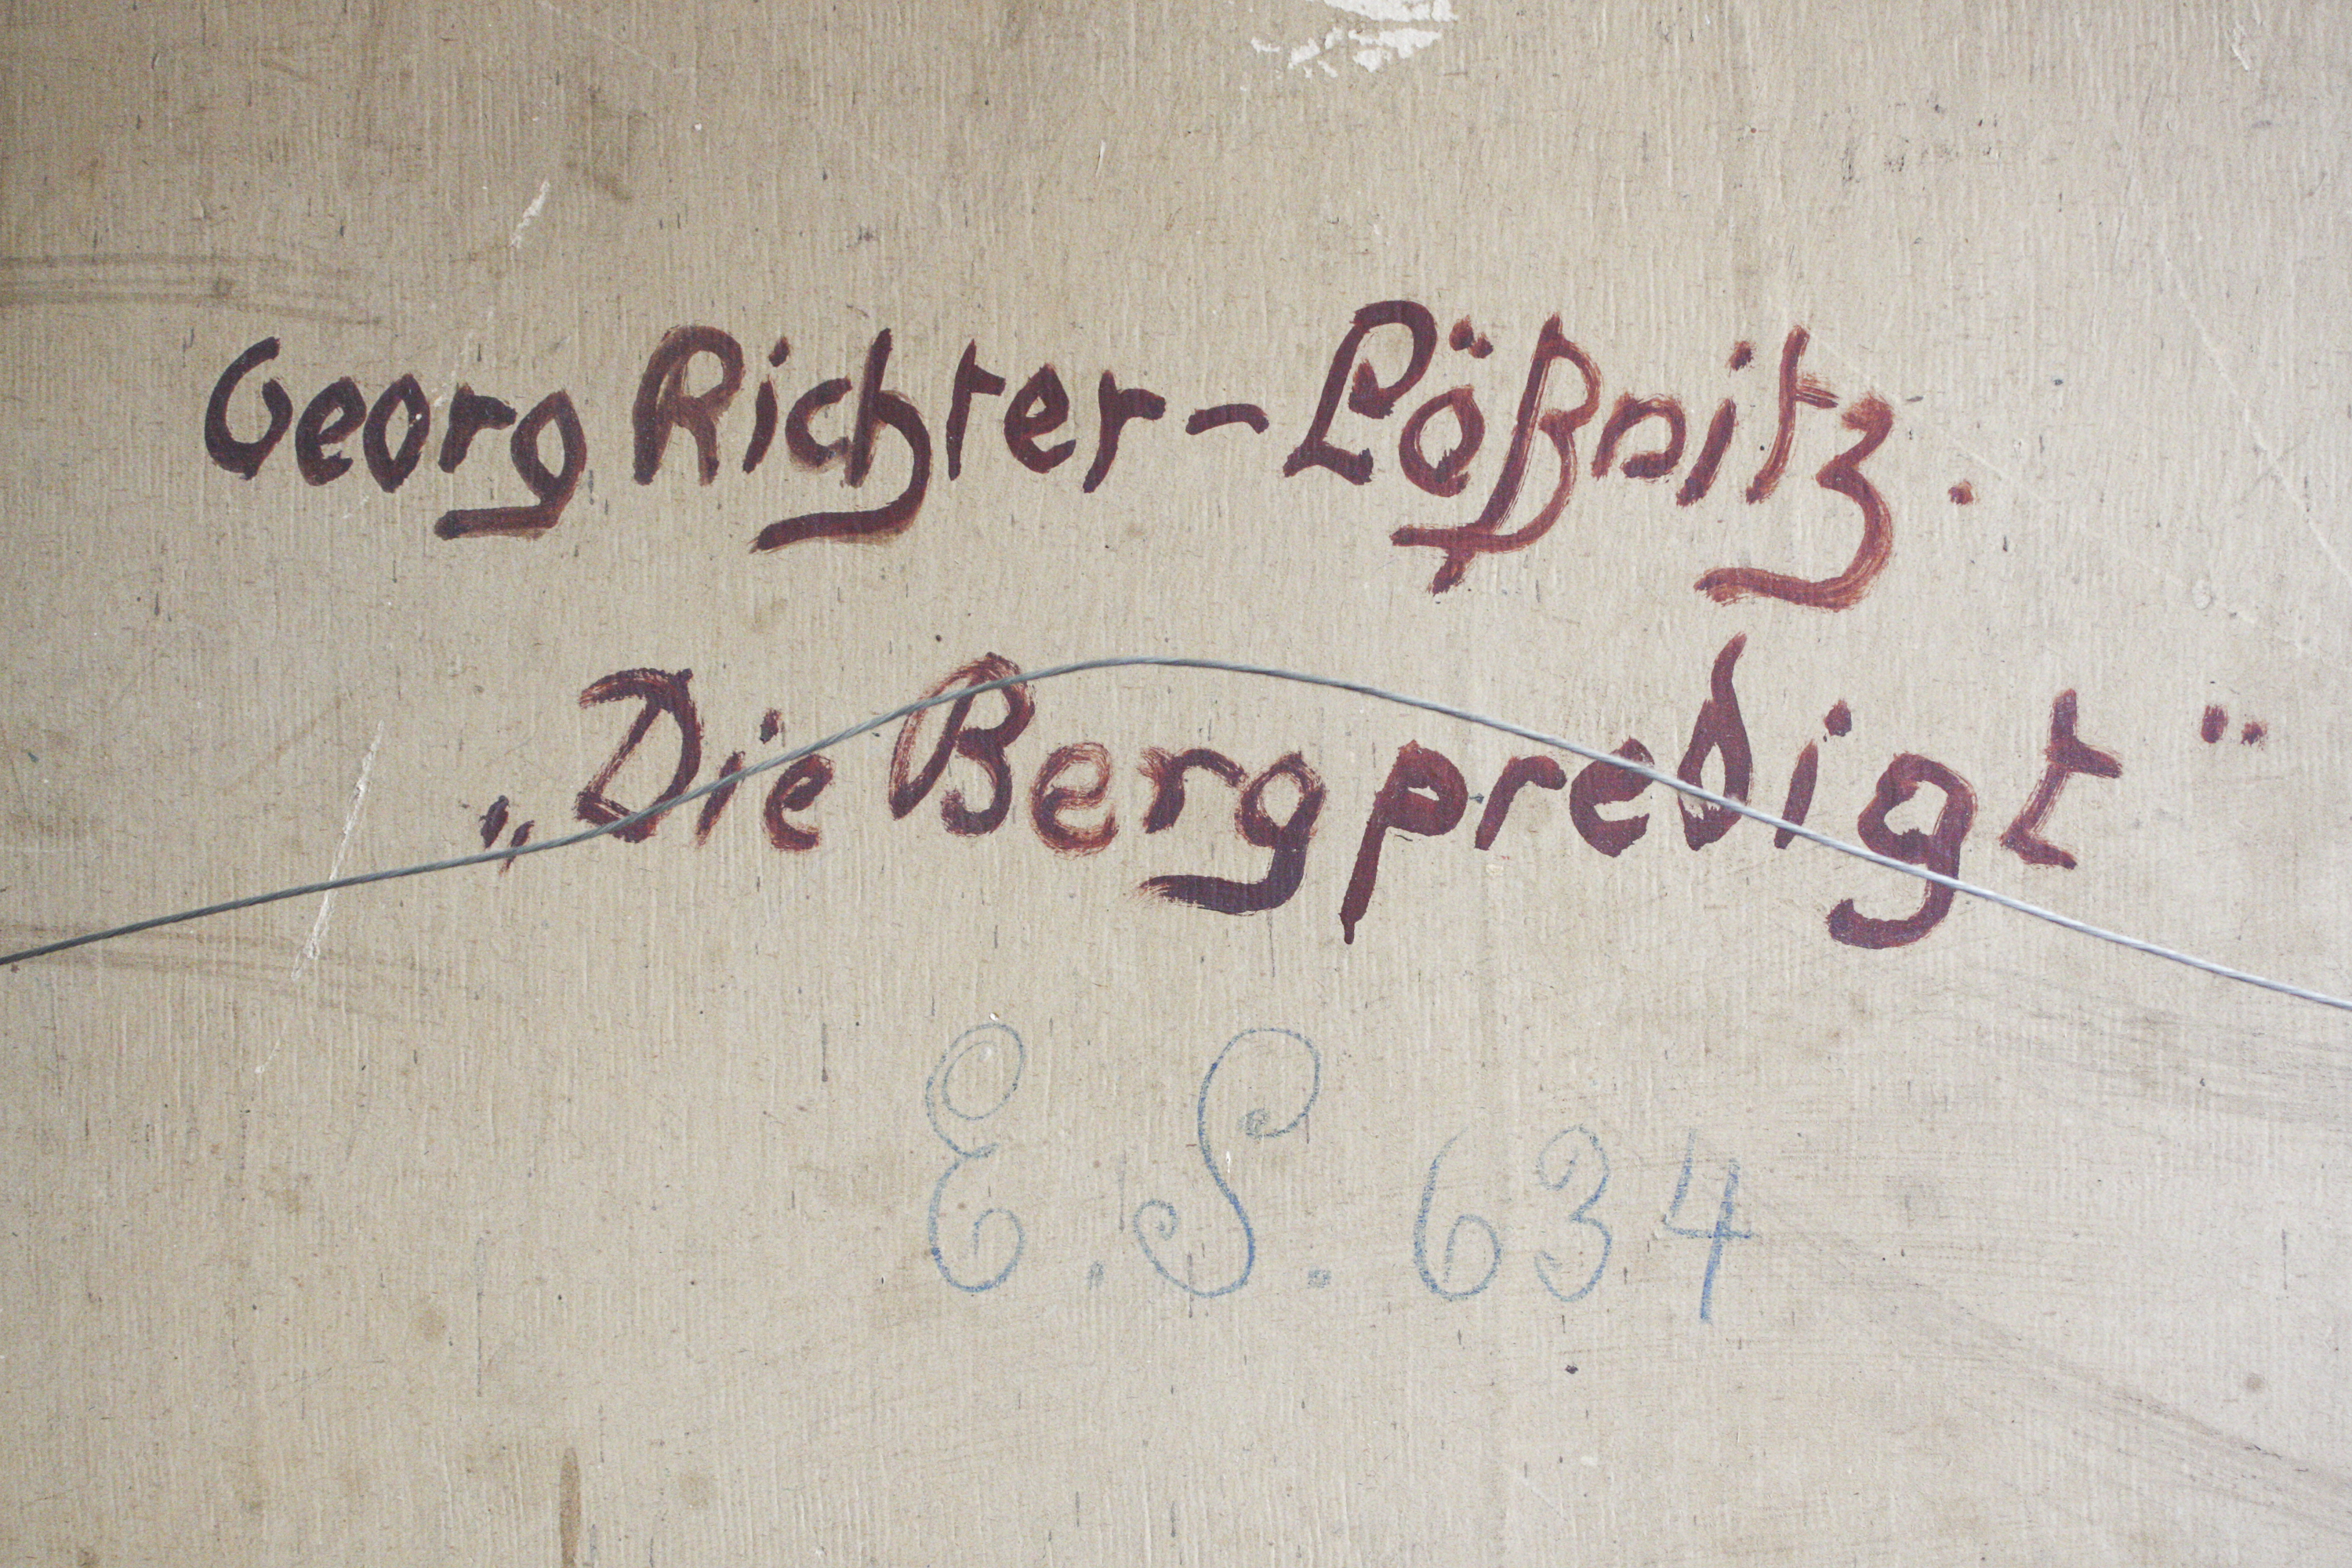 Georg Richter-Lößnitz.
„Die Bergpredigt"
E. S. 634